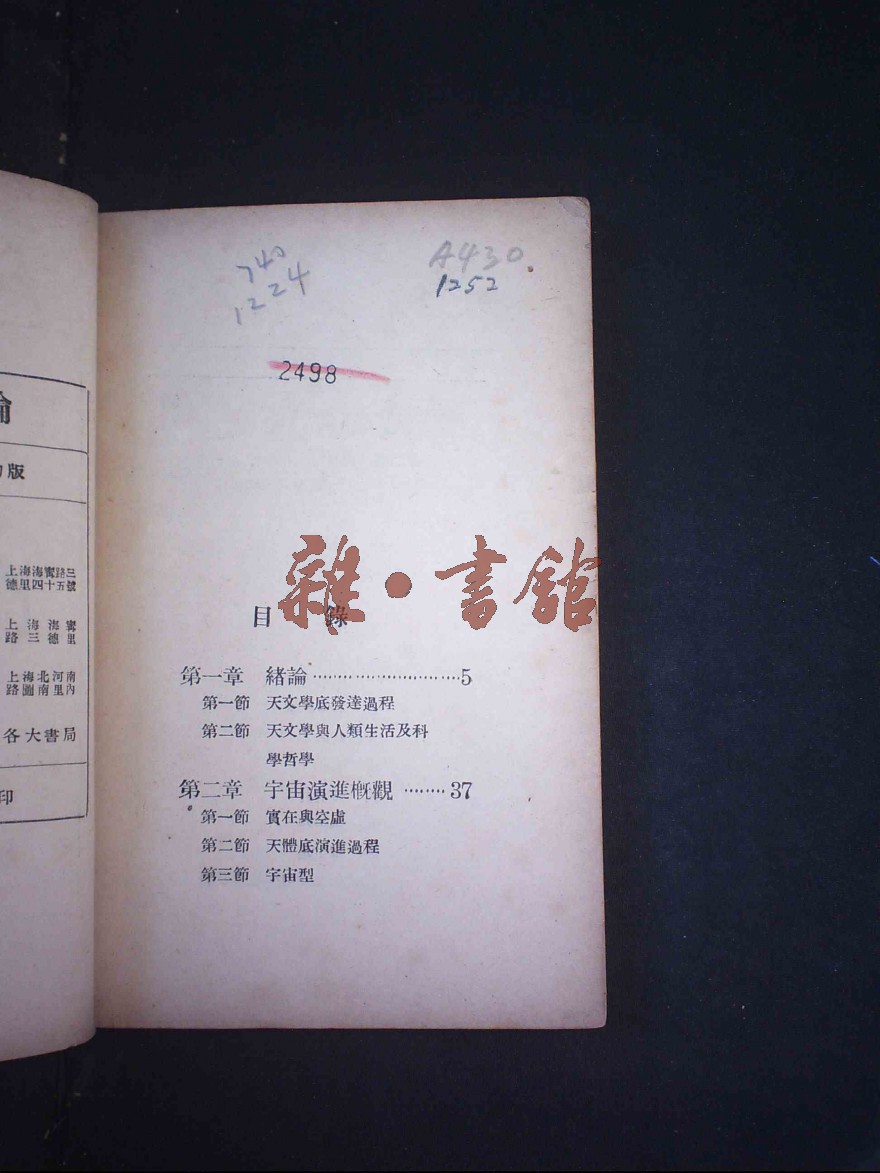 論
版
上海海甯路三
德里四十五號
上海海甯
路三德里
上海北河南
路圖南里內
各大書局
印
740
1224
A430
1252
2498
雜•書館
目錄
第一章 緒論 ························5
第一節 天文學底發達過程
第二節 天文學與人類生活及科
學哲學
第二章 宇宙演進概觀 ········37
第一節 實在與空虛
第二節 天體底演進過程
第三節 宇宙型